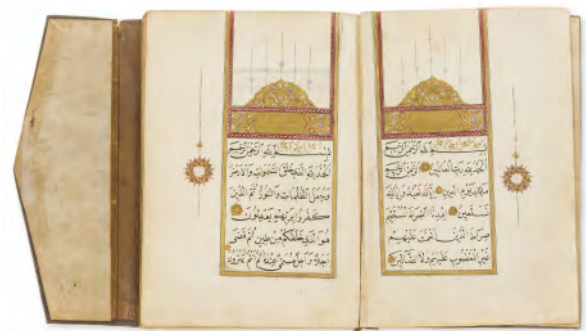 بسم الله الرحمن الرحيم
الحمد لله رب العالمين الرحمن الرحيم
مالك يوم الدين اياك نعبد واياك
نستعين اهدنا الصراط المستقيم
صراط الذين انعمت عليهم
غير المغضوب عليهم ولا الضالين
بسم الله الرحمن الرحيم
الحمد لله الذي خلق السموات والارض
وجعل الظلمات والنور ثم الذين
كفروا بربهم يعدلون
هو الذي خلقكم من طين ثم قضى
اجلا واجل مسمى عنده ثم انتم تمترون